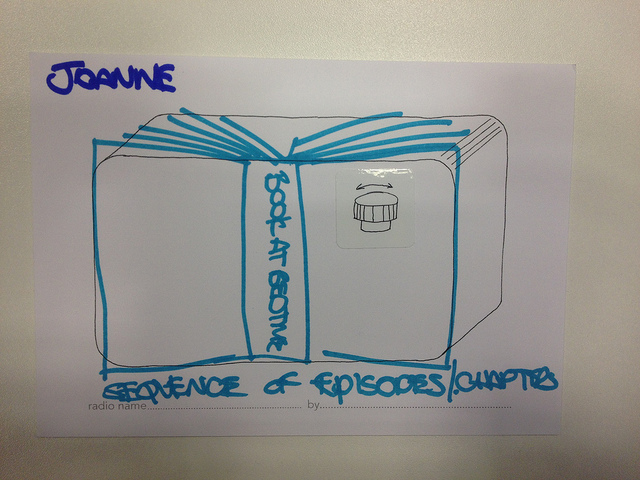 JOANNE
BOOK AT BEDTIME
SEQUENCE OF EPISODES/CHAPTERS
radio name by